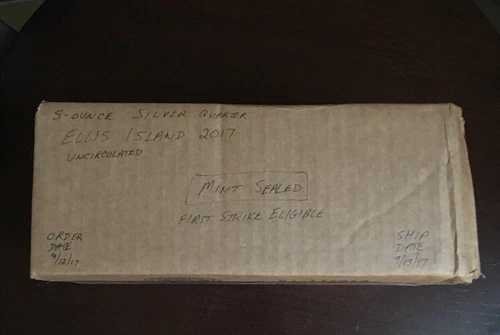 5-OUNCE SILVER QUARTER
ELLIS ISLAND 2017
UNCIRCULATED
MINT SEALED
FIRST STRIKE ELIGIBLE
ORDER
DATE
9/12/17
SHIP
DATE